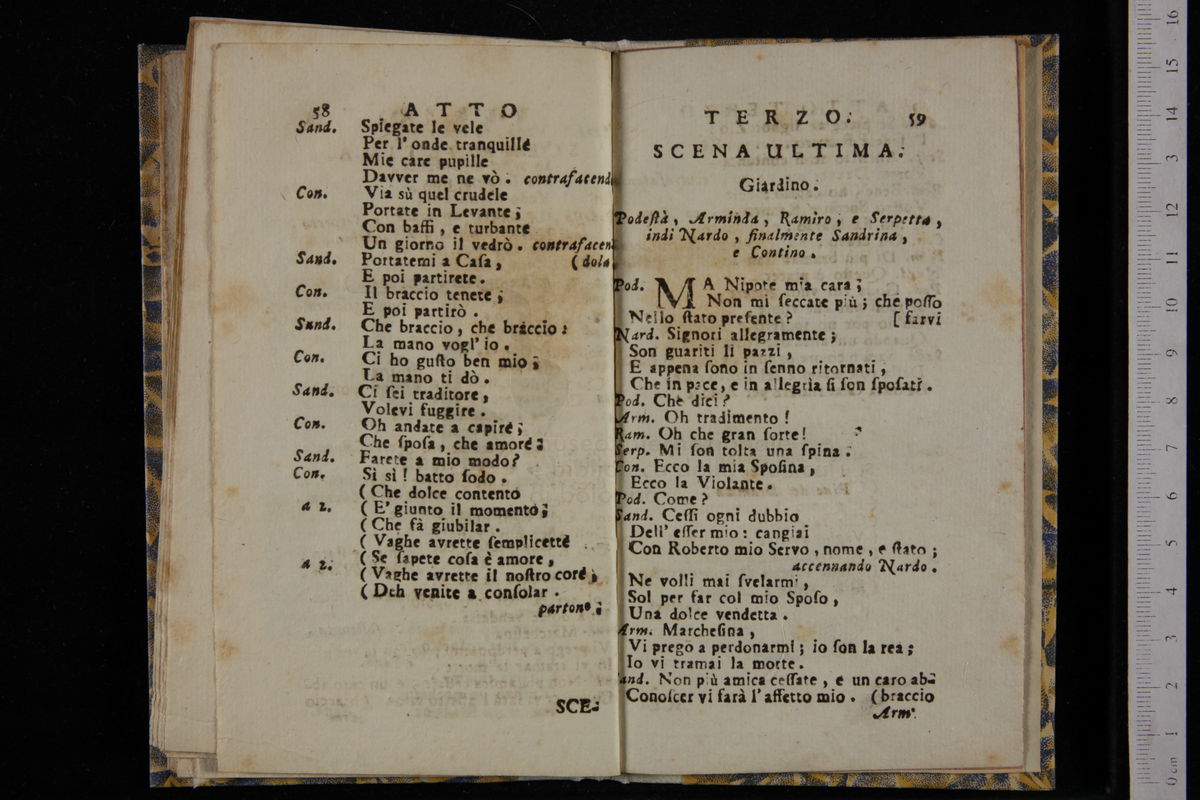 58 ATTO
Sand. Spiegate le vele
Per l'onde tranquille
Mie care pupille
Davver me ne vò. contrafacend
Con. Via sù quel crudele
Portate in Levante;
Con baffi, e turbante
Un giorno il vedrò. contrafacen
Sand. Portatemi a Caſa, (dola
E poi partirete.
Con. Il braccio tenete;
E poi partirò.
Sand. Che braccio, che braccio:
La mano vogl'io.
Con. Ci ho guſto ben mio;
La mano ti dò.
Sand. Ci ſei traditore,
Volevi fuggire.
Con. Oh andate a capire;
Che ſpoſa, che amore:
Sand. Farete a mio modo?
Con. Sì sì! batto ſodo.
(Che dolce contento
a 2. (E' giunto il momento;
(Che fà giubilar.
(Vaghe avrette ſemplicette
a 2. (Se ſapete coſa è amore,
(Vaghe avrette il noſtro core;
(Deh venite a conſolar.
partono.
SCE-
TERZO. 59
SCENA ULTIMA.
Giardino.
Podeſtà, Arminda, Ramiro, e Serpetta,
indi Nardo, finalmente Sandrina,
e Contino.
Pod. MA Nipote mia cara;
Non mi ſeccate più; che poſſo
Nello ſtato preſente? [farvi
Nard. Signori allegramente;
Son guariti li pazzi,
E appena ſono in ſenno ritornati,
Che in pace, e in allegria ſi ſon ſpoſati.
Pod. Che dici?
Arm. Oh tradimento!
Ram. Oh che gran ſorte!
Serp. Mi ſon tolta una ſpina.
Con. Ecco la mia Spoſina,
Ecco la Violante.
Pod. Come?
Sand. Ceſſi ogni dubbio
Dell'eſſer mio: cangiai
Con Roberto mio Servo, nome, e ſtato;
accennando Nardo.
Ne volli mai ſvelarmi,
Sol per far col mio Spoſo,
Una dolce vendetta.
Arm. Marcheſina,
Vi prego a perdonarmi; io ſon la rea;
Io vi tramai la morte.
and. Non più amica ceſſate, e un caro ab-
Conoſcer vi farà l'affetto mio. (braccio
Arm.